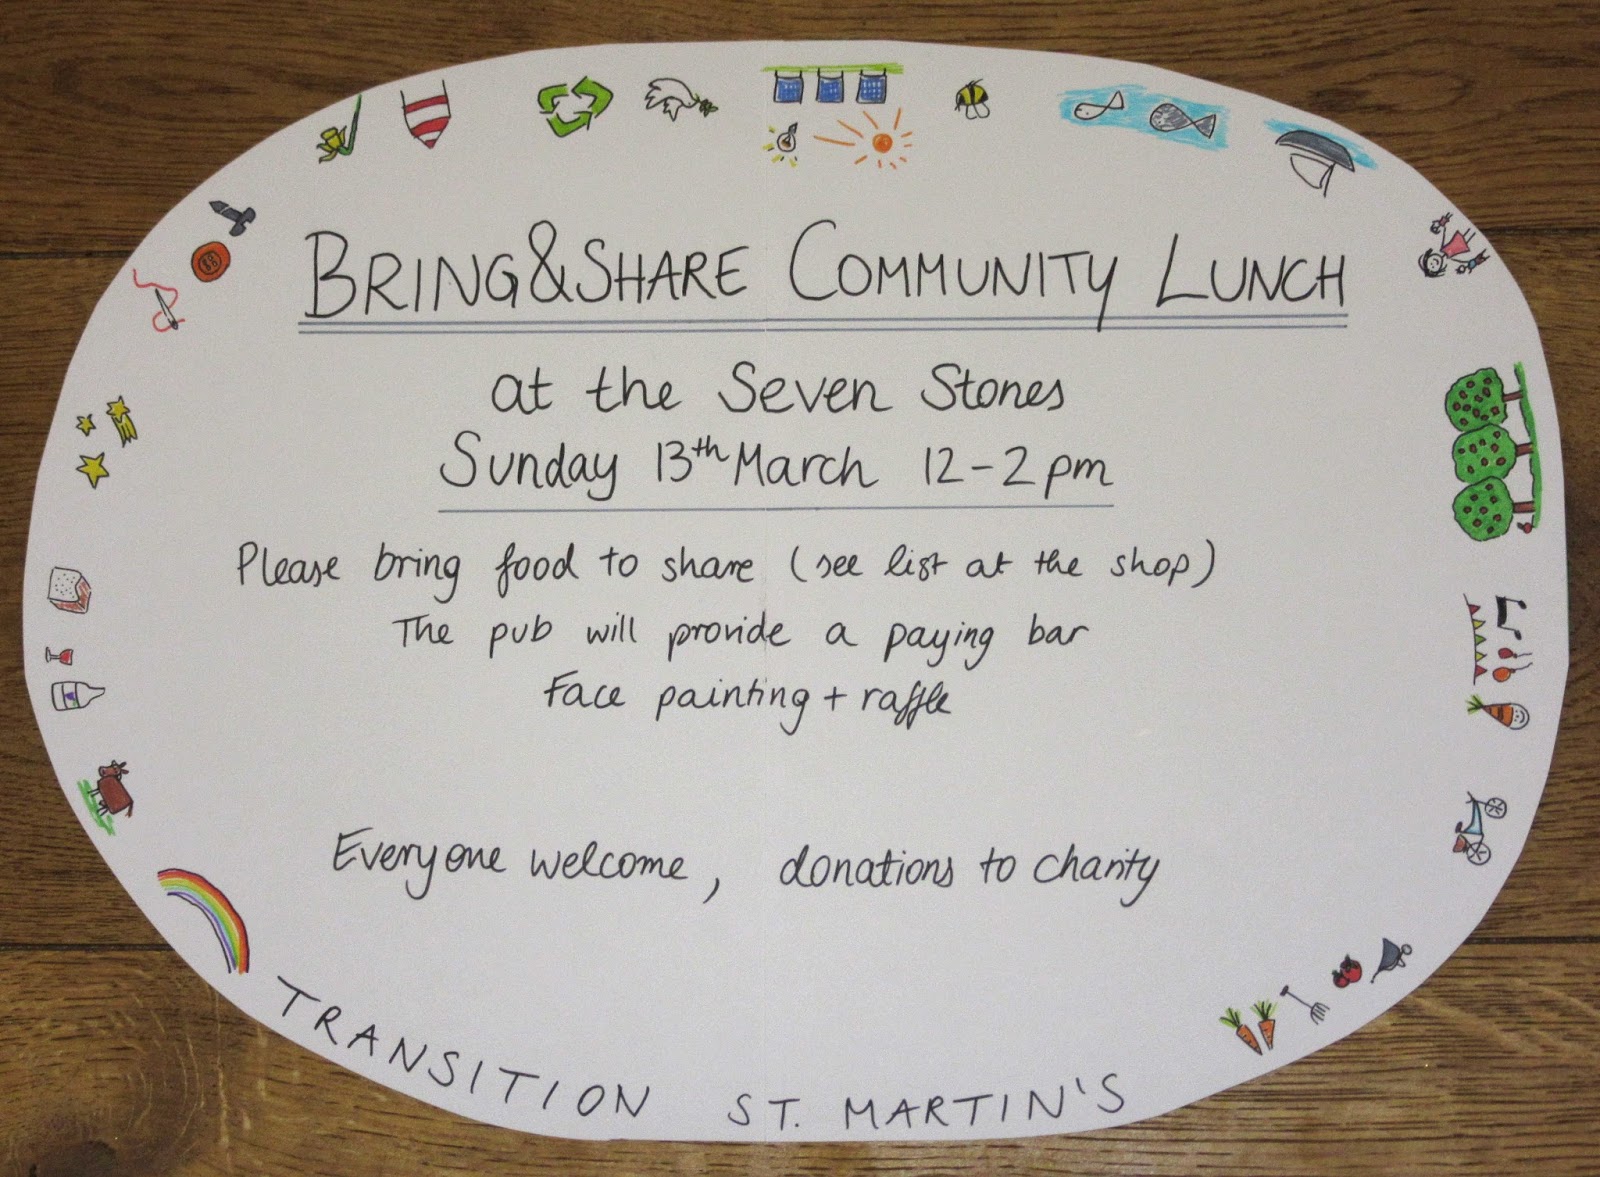 BRING & SHARE COMMUNITY LUNCH
at the Seven Stones
Sunday 13th March 12-2pm
Please bring food to share (see list at the shop)
The pub will provide a paying bar
Face painting + raffle
Everyone welcome, donations to charity
TRANSITION ST. MARTIN'S